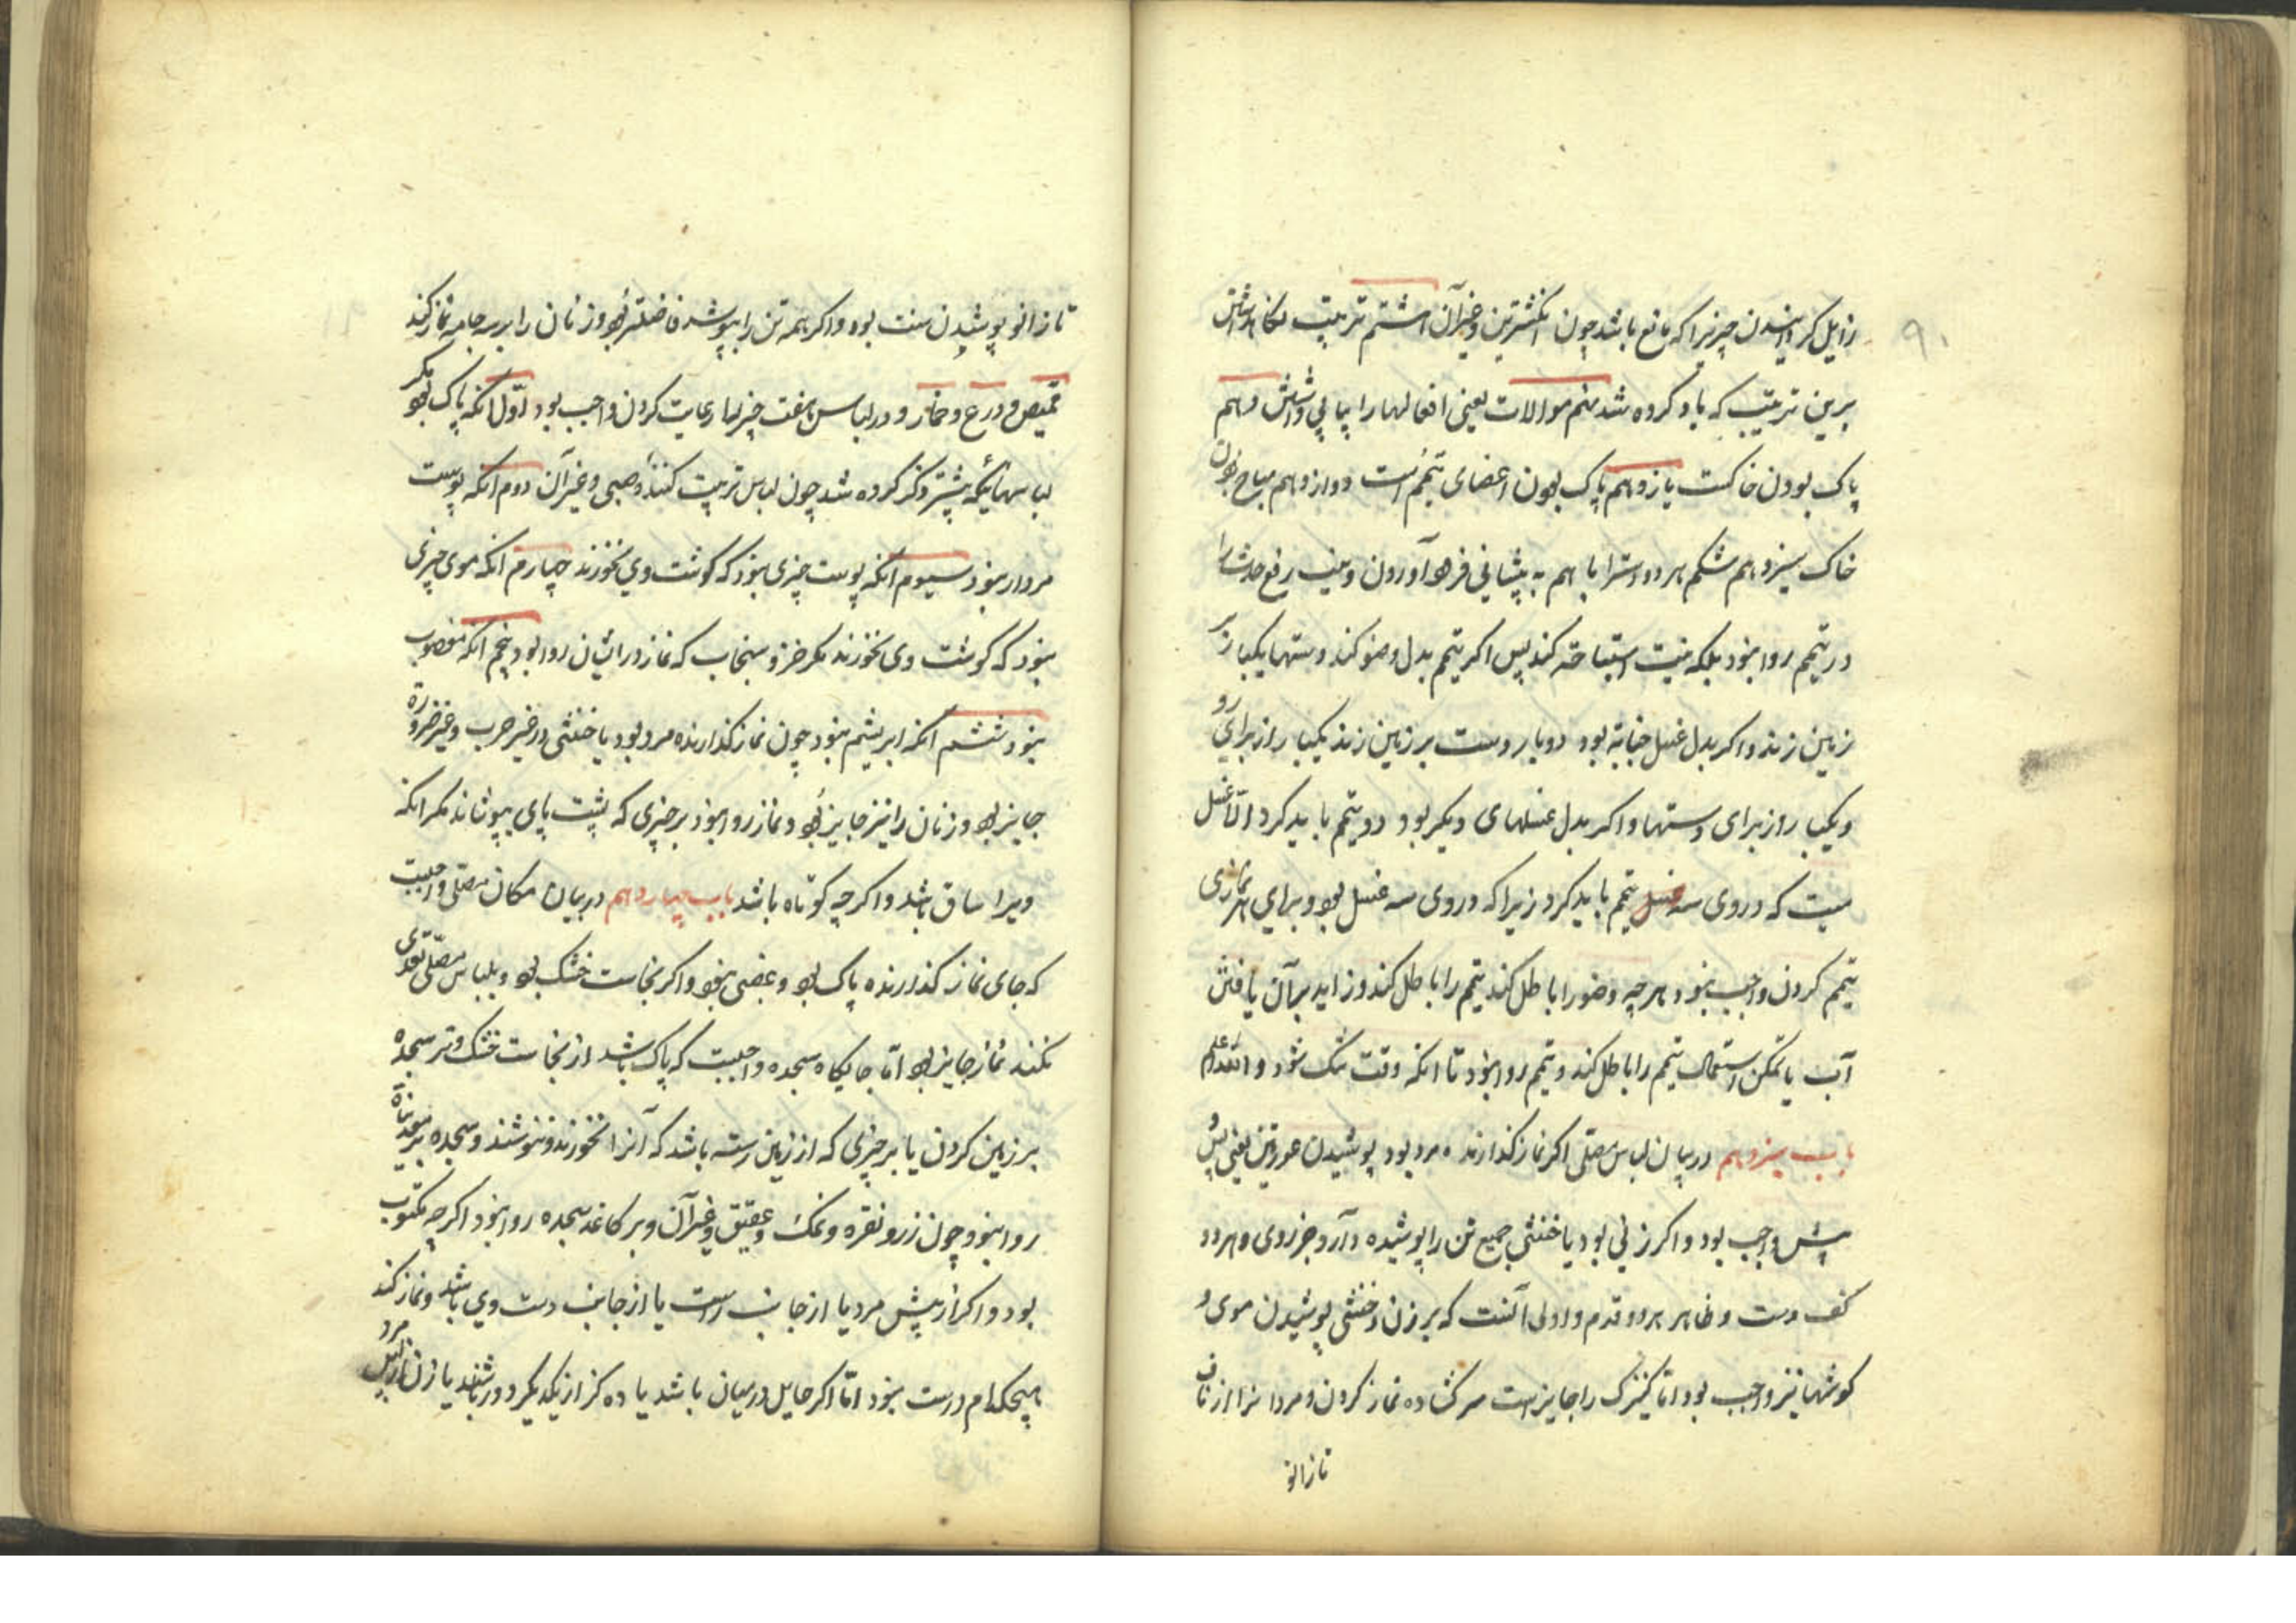 ۹۰
زایل کردانیدن چیزیرا که مانع باشد چون انکشترین و غیر آن هشتم ترتیب نکاهداشتن
برین ترتیب که یاد کرده شد نهم موالات یعنی افعالها را پیاپی داشتن دهم
پاک بودن خاکست یازدهم پاک بودن اعضای تیمم است دوازدهم مباح بودن
خاک سیزدهم شکم هر دو دسترا با هم به پیشانی فرود آوردن و نیت رفع حدث را
در تیمم روا نبود بلکه نیت استباحة کند پس اکر تیمم بدل وضو کند دستها یکبار بر
زمین زند و اکر بدل غسل جنابة بود دو بار دست بر زمین زند یکبار از برای رو
و یکبار از برای دستها و اکر بدل غسلهای دیکر بود دو تیمم باید کرد الا غسل
میت که در وی سه تیمم باید کرد زیرا که در وی سه غسل بود و برای هر نمازی
تیمم کردن واجب نبود و هر چه وضو را باطل کند تیمم را باطل کند و زاید بر آن یافتن
آب با تمکن استعمال تیمم را باطل کند و تیمم روا نبود تا انکه وقت تنک شود و الله اعلم
باب سیزدهم در بیان لباس مصلی اکر نماز کذارنده مرد بود پوشیدن عورتین یعنی پس و
پیش واجب بود و اکر زنی بود یا خنثی جمیع تن را پوشیده دارد جز روی و هر دو
کف دست و ظاهر هر دو قدم و اولی آنست که بر زن و خنثی پوشیدن موی و
کوشها نیز واجب بود اما کنیزک را جایزست سر کشاده نماز کردن و مردانرا از ناف
تا زانو
تا زانو پوشیدن سنت بود و اکر همه تن را بپوشد فاضلتر بود و زنان را بر سه جامه نماز کند
قمیص و درع و خمار و در لباس هفت چیز را رعایت کردن واجب بود اول انکه پاک بود مکر
لباسهائیکه پیشتر ذکر کرده شد چون لباس تربیت کنندۀ صبی و غیر آن دوم انکه پوست
مردار نبود سیوم انکه پوست چیزی نبود که کوشت وی نخورند چهارم انکه موی چیزی
نبود که کوشت وی نخورند مکر خز و سنجاب که نماز در ایشان روا بود پنجم انکه مغصوب
نبود ششم انکه ابریشم نبود چون نماز کذارنده مرد بود یا خنثی در غیر حرب و غیر ضرورة
جایز بود و زنان را نیز جایز بود و نماز روا نبود بر چیزی که پشت پای بپوشاند مکر انکه
ویرا ساق باشد و اکر چه کوتاه باشد باب چهاردهم در بیان مکان مصلی واجبست
که جای نماز کذارنده پاک بود و غصبی نبود و اکر نجاست خشک بود و بلباس مصلی تعدی
نکند نماز جایز بود اما جایکاه سجده واجبست که پاک باشد از نجاست خشک و تر سجده
بر زمین کردن یا بر چیزی که از زمین رسته باشد که آنرا نخورند و ننوشند و سجده بر معدنیاة
روا نبود چون زر و نقره و نمک و عقیق و غیر آن و بر کاغذ سجده روا بود اکر چه مکتوب
بود و اکر از پیش مرد یا از جانب راست یا از جانب دست وی باشد و نماز کند
هیچکدام درست نبود اما اکر حایل در میان باشد یا ده کز از یکدیکر دور باشند یا زن از پس مرد